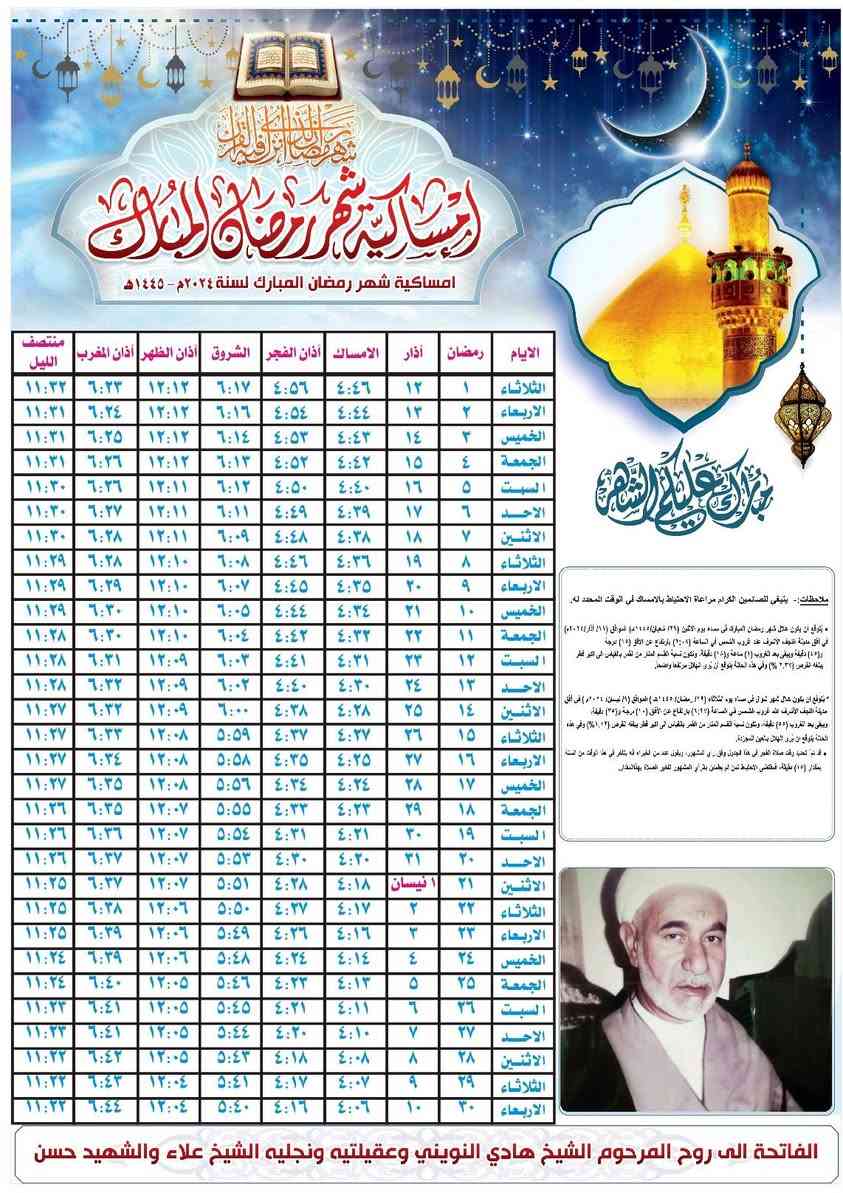 شهر رمضان الذي أنزل فيه القرآن
إمساكية شهر رمضان المبارك
امساكية شهر رمضان المبارك لسنة ٢٠٢٤م - ١٤٤٥هـ
مبارك عليكم الشهر
الايام رمضان أذار الامساك أذان الفجر الشروق أذان الظهر أذان المغرب منتصف الليل
الثلاثاء ١ ١٢ ٤:٤٦ ٤:٥٦ ٦:١٧ ١٢:١٢ ٦:٢٣ ١١:٣٢
الاربعاء ٢ ١٣ ٤:٤٤ ٤:٥٤ ٦:١٦ ١٢:١٢ ٦:٢٤ ١١:٣١
الخميس ٣ ١٤ ٤:٤٣ ٤:٥٣ ٦:١٤ ١٢:١٢ ٦:٢٥ ١١:٣١
الجمعة ٤ ١٥ ٤:٤٢ ٤:٥٢ ٦:١٣ ١٢:١٢ ٦:٢٦ ١١:٣١
السبت ٥ ١٦ ٤:٤٠ ٤:٥٠ ٦:١٢ ١٢:١١ ٦:٢٦ ١١:٣٠
الاحد ٦ ١٧ ٤:٣٩ ٤:٤٩ ٦:١١ ١٢:١١ ٦:٢٧ ١١:٣٠
الاثنين ٧ ١٨ ٤:٣٨ ٤:٤٨ ٦:٠٩ ١٢:١١ ٦:٢٨ ١١:٣٠
الثلاثاء ٨ ١٩ ٤:٣٦ ٤:٤٦ ٦:٠٨ ١٢:١٠ ٦:٢٨ ١١:٢٩
الاربعاء ٩ ٢٠ ٤:٣٥ ٤:٤٥ ٦:٠٧ ١٢:١٠ ٦:٢٩ ١١:٢٩
الخميس ١٠ ٢١ ٤:٣٤ ٤:٤٤ ٦:٠٥ ١٢:١٠ ٦:٣٠ ١١:٢٩
الجمعة ١١ ٢٢ ٤:٣٢ ٤:٤٢ ٦:٠٤ ١٢:١٠ ٦:٣٠ ١١:٢٨
السبت ١٢ ٢٣ ٤:٣١ ٤:٤١ ٦:٠٣ ١٢:٠٩ ٦:٣١ ١١:٢٨
الاحد ١٣ ٢٤ ٤:٣٠ ٤:٤٠ ٦:٠٢ ١٢:٠٩ ٦:٣٢ ١١:٢٨
الاثنين ١٤ ٢٥ ٤:٢٨ ٤:٣٨ ٦:٠٠ ١٢:٠٩ ٦:٣٢ ١١:٢٧
الثلاثاء ١٥ ٢٦ ٤:٢٧ ٤:٣٧ ٥:٥٩ ١٢:٠٨ ٦:٣٣ ١١:٢٧
الاربعاء ١٦ ٢٧ ٤:٢٥ ٤:٣٥ ٥:٥٨ ١٢:٠٨ ٦:٣٤ ١١:٢٧
الخميس ١٧ ٢٨ ٤:٢٤ ٤:٣٤ ٥:٥٦ ١٢:٠٨ ٦:٣٥ ١١:٢٧
الجمعة ١٨ ٢٩ ٤:٢٣ ٤:٣٣ ٥:٥٥ ١٢:٠٧ ٦:٣٥ ١١:٢٦
السبت ١٩ ٣٠ ٤:٢١ ٤:٣١ ٥:٥٤ ١٢:٠٧ ٦:٣٦ ١١:٢٦
الاحد ٢٠ ٣١ ٤:٢٠ ٤:٣٠ ٥:٥٣ ١٢:٠٧ ٦:٣٧ ١١:٢٦
الاثنين ٢١ ١ نيسان ٤:١٨ ٤:٢٨ ٥:٥١ ١٢:٠٧ ٦:٣٧ ١١:٢٥
الثلاثاء ٢٢ ٢ ٤:١٧ ٤:٢٧ ٥:٥٠ ١٢:٠٦ ٦:٣٨ ١١:٢٥
الاربعاء ٢٣ ٣ ٤:١٦ ٤:٢٦ ٥:٤٩ ١٢:٠٦ ٦:٣٩ ١١:٢٥
الخميس ٢٤ ٤ ٤:١٤ ٤:٢٤ ٥:٤٨ ١٢:٠٦ ٦:٣٩ ١١:٢٤
الجمعة ٢٥ ٥ ٤:١٣ ٤:٢٣ ٥:٤٦ ١٢:٠٥ ٦:٤٠ ١١:٢٤
السبت ٢٦ ٦ ٤:١١ ٤:٢١ ٥:٤٥ ١٢:٠٥ ٦:٤١ ١١:٢٣
الاحد ٢٧ ٧ ٤:١٠ ٤:٢٠ ٥:٤٤ ١٢:٠٥ ٦:٤١ ١١:٢٣
الاثنين ٢٨ ٨ ٤:٠٨ ٤:١٨ ٥:٤٣ ١٢:٠٥ ٦:٤٢ ١١:٢٣
الثلاثاء ٢٩ ٩ ٤:٠٧ ٤:١٧ ٥:٤١ ١٢:٠٤ ٦:٤٣ ١١:٢٢
الاربعاء ٣٠ ١٠ ٤:٠٦ ٤:١٦ ٥:٤٠ ١٢:٠٤ ٦:٤٤ ١١:٢٢
ملاحظات:- ينبغي للصائمين الكرام مراعاة الاحتياط بالامساك في الوقت المحدد له.
الفاتحة الى روح المرحوم الشيخ هادي النويني وعقيلتيه ونجليه الشيخ علاء والشهيد حسن